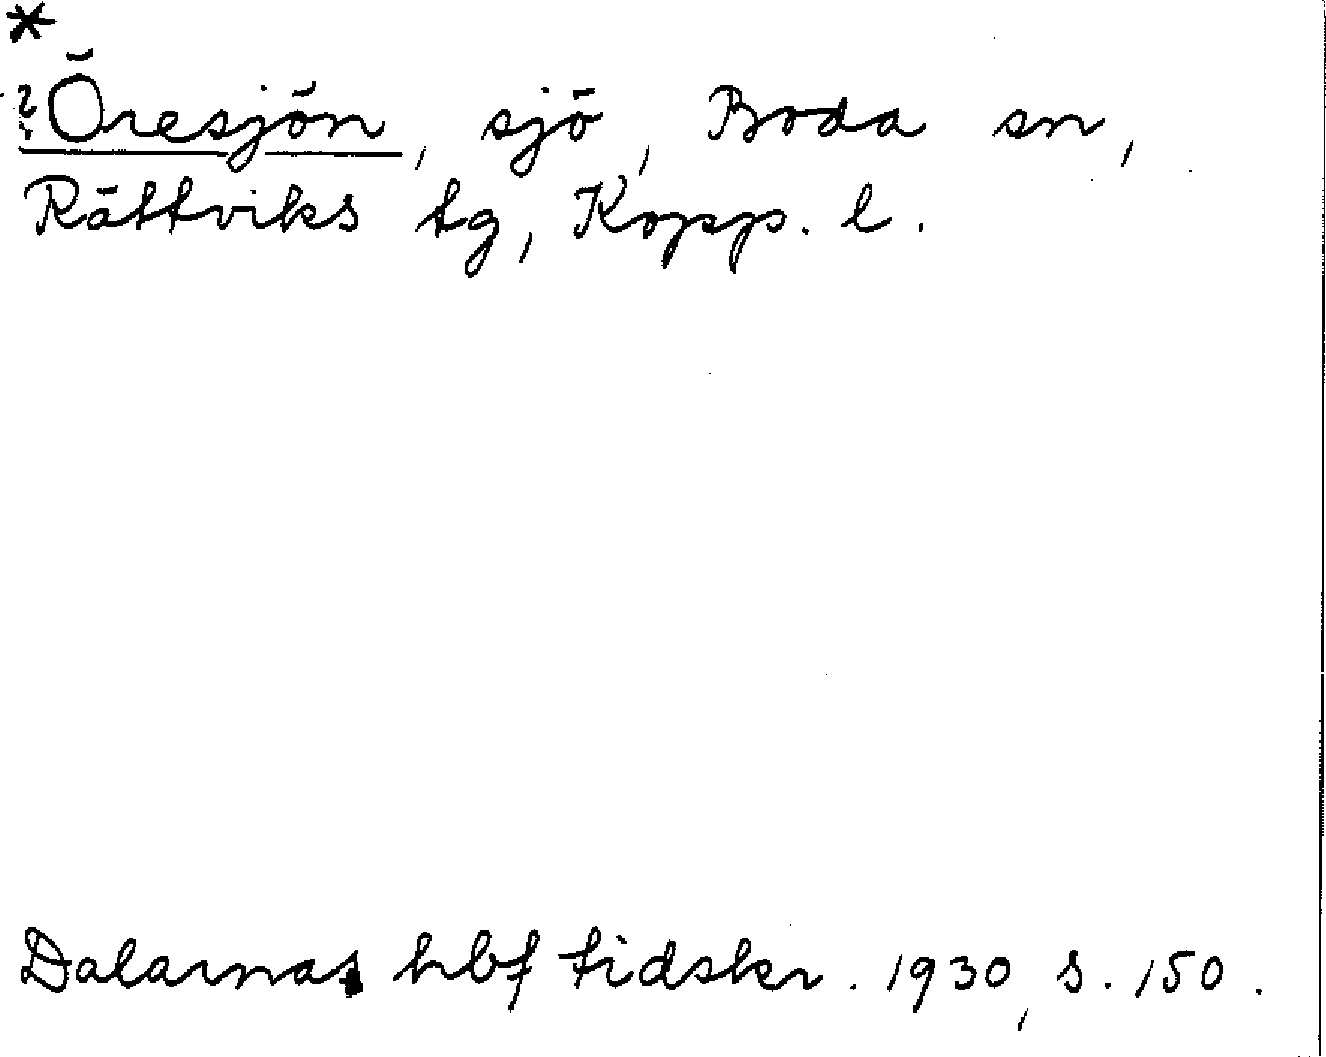 *
? Öresjön, sjö, Boda sn,
Rättviks tg, Kopp. l.
Dalarnas hbf tidskr. 1930, s. 150.